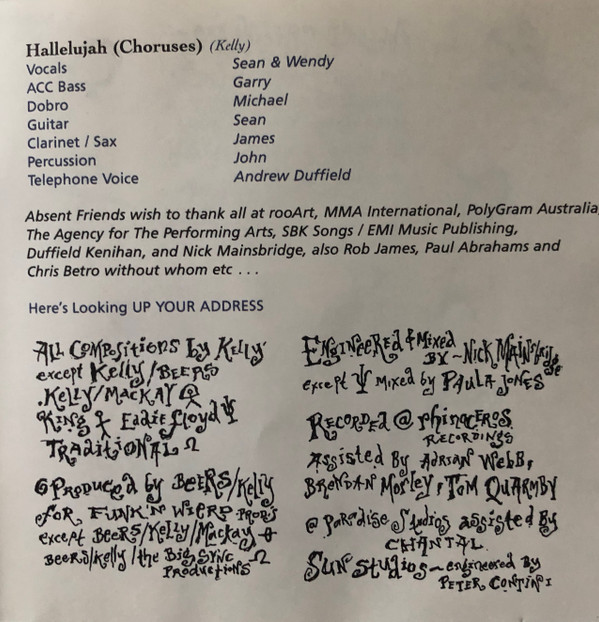 Hallelujah (Choruses) (Kelly)
Vocals Sean & Wendy
ACC Bass Garry
Dobro Michael
Guitar Sean
Clarinet / Sax James
Percussion John
Telephone Voice Andrew Duffield
Absent Friends wish to thank all at rooArt, MMA International, PolyGram Australia,
The Agency for The Performing Arts, SBK Songs / EMI Music Publishing,
Duffield Kenihan, and Nick Mainsbridge, also Rob James, Paul Abrahams and
Chris Betro without whom etc . . .
Here's Looking UP YOUR ADDRESS
ALL COMPOSITIONS by KELLY
except KELLY/BEERS
KELLY/MACKAY
KING & EDDIE FLOYD Ψ
TRADITIONAL Ω
PRODUCED by BEERS/KELLY
FOR FUNK'N WIERP PRODS
except BEERS/KELLY/MACKAY
BEERS/KELLY/the BIG SYNC Ω
PRODUCTIONS
ENGINEERED & MIXED
BY ~ NICK MAINSBRIDGE
except Ψ MIXED by PAULA JONES
RECORDED @ RHINOCEROS
RECORDINGS
ASSISTED BY ADRIAN WEBB,
BRENDAN MORLEY, TOM QUARMBY
@ PARADISE STUDIOS ASSISTED BY
CHANTAL.
SUN STUDIOS ~ engineered BY
PETER CONTINI